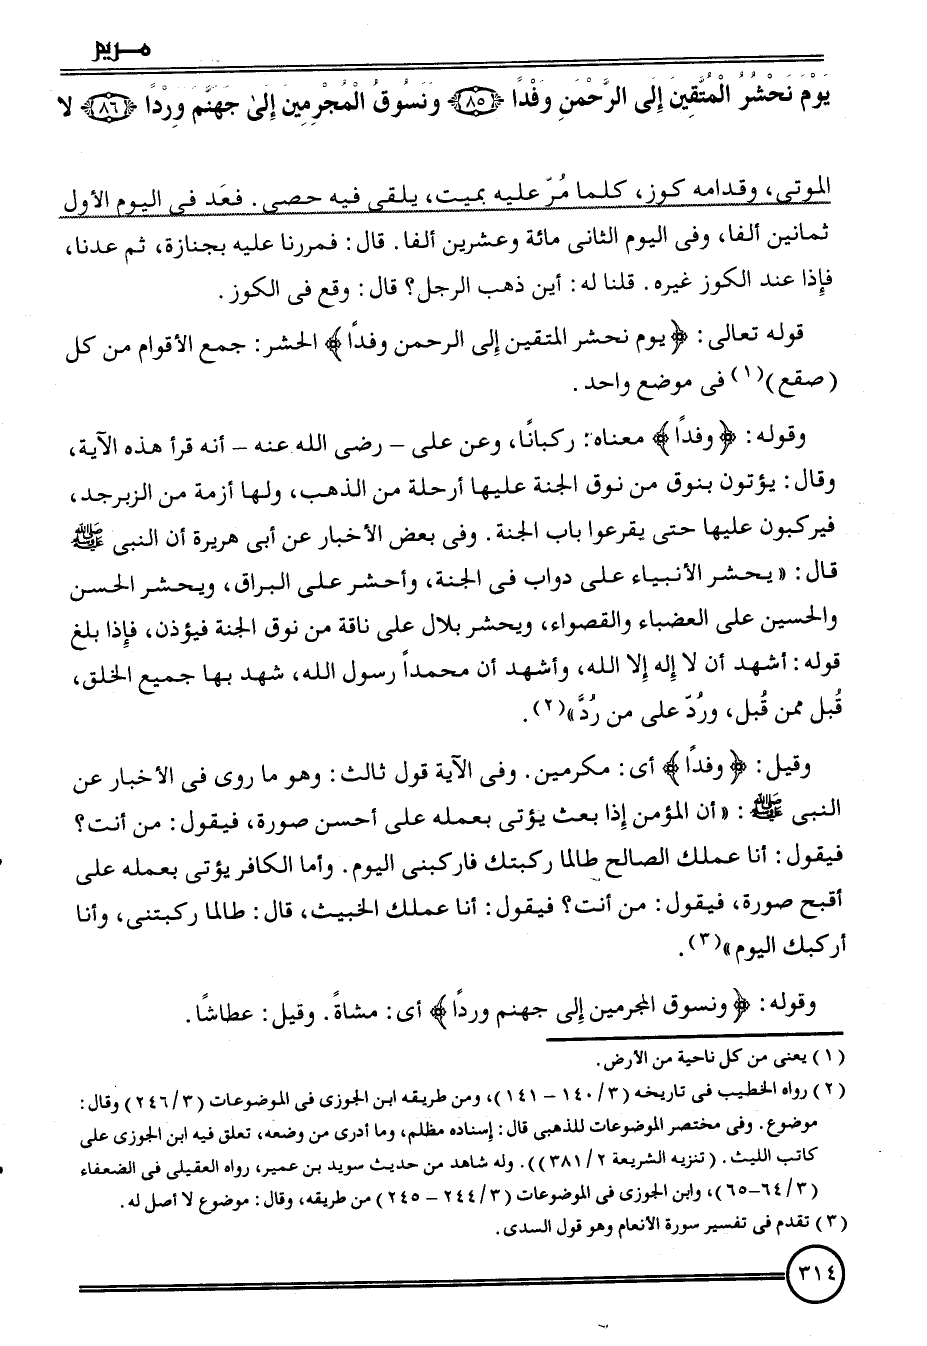 مـريم
يَوْمَ نَحْشُرُ الْمُتَّقِينَ إِلَى الرَّحْمَنِ وَفْدًا ﴿٨٥﴾ وَنَسُوقُ الْمُجْرِمِينَ إِلَىٰ جَهَنَّمَ وِرْدًا ﴿٨٦﴾ لا
الموتى، وقدامه كوز، كلما مُرّ عليه بميت، يلقى فيه حصى. فعَد فى اليوم الأول
ثمانين ألفا، وفى اليوم الثانى مائة وعشرين ألفا. قال: فمررنا عليه بجنازة، ثم عدنا،
فإذا عند الكوز غيره. قلنا له: أين ذهب الرجل؟ قال: وقع فى الكوز.
قوله تعالى: ﴿يوم نحشر المتقين إلى الرحمن وفدًا﴾ الحشر: جمع الأقوام من كل
(صقع)(١) فى موضع واحد.
وقوله: ﴿وفداً﴾ معناه: ركبانًا، وعن على – رضى الله عنه – أنه قرأ هذه الآية،
وقال: يؤتون بنوق من نوق الجنة عليها أرحلة من الذهب، ولها أزمة من الزبرجد،
فيركبون عليها حتى يقرعوا باب الجنة. وفى بعض الأخبار عن أبى هريرة أن النبى ﷺ
قال: «يحشر الأنبياء على دواب فى الجنة، وأحشر على البراق، ويحشر الحسن
والحسين على العضباء والقصواء، ويحشر بلال على ناقة من نوق الجنة فيؤذن، فإذا بلغ
قوله: أشهد أن لا إله إلا الله، وأشهد أن محمداً رسول الله، شهد بها جميع الخلق،
قُبل ممن قُبل، ورُدّ على من رُدَّ»(٢).
وقيل: ﴿وفداً﴾ أى: مكرمين. وفى الآية قول ثالث: وهو ما روى فى الأخبار عن
النبى ﷺ: «أن المؤمن إذا بعث يؤتى بعمله على أحسن صورة، فيقول: من أنت؟
فيقول: أنا عملك الصالح طالما ركبتك فاركبنى اليوم. وأما الكافر يؤتى بعمله على
أقبح صورة، فيقول: من أنت؟ فيقول: أنا عملك الخبيث، قال: طالما ركبتنى، وأنا
أركبك اليوم»(٣).
وقوله: ﴿ونسوق المجرمين إلى جهنم وردًا﴾ أى: مشاةً. وقيل: عطاشًا.
(١) يعنى من كل ناحية من الأرض.
(٢) رواه الخطيب فى تاريخه (٣/ ١٤٠ – ١٤١)، ومن طريقه ابن الجوزى فى الموضوعات (٣/ ٢٤٦) وقال:
موضوع. وفى مختصر الموضوعات للذهبي قال: إسناده مظلم، وما أدرى من وضعه، تعلق فيه ابن الجوزى على
كاتب الليث. (تنزيه الشريعة ٢/ ٣٨١)). وله شاهد من حديث سويد بن عمير، رواه العقيلى فى الضعفاء
(٣/ ٦٤–٦٥)، وابن الجوزى فى الموضوعات (٣/ ٢٤٤ – ٢٤٥) من طريقه، وقال: موضوع لا أصل له.
(٣) تقدم فى تفسير سورة الأنعام وهو قول السدى.
٣١٤